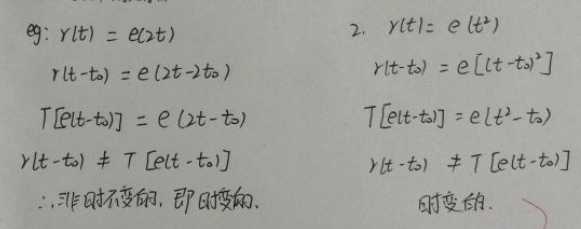 eg: r(t) = e(2t)
r(t-t₀) = e(2t-2t₀)
T[e(t-t₀)] = e(2t-t₀)
r(t-t₀) ≠ T[e(t-t₀)]
∴非时不变的, 即时变的.
2. r(t) = e(t²)
r(t-t₀) = e[(t-t₀)²]
T[e(t-t₀)] = e(t²-t₀)
r(t-t₀) ≠ T[e(t-t₀)]
时变的.